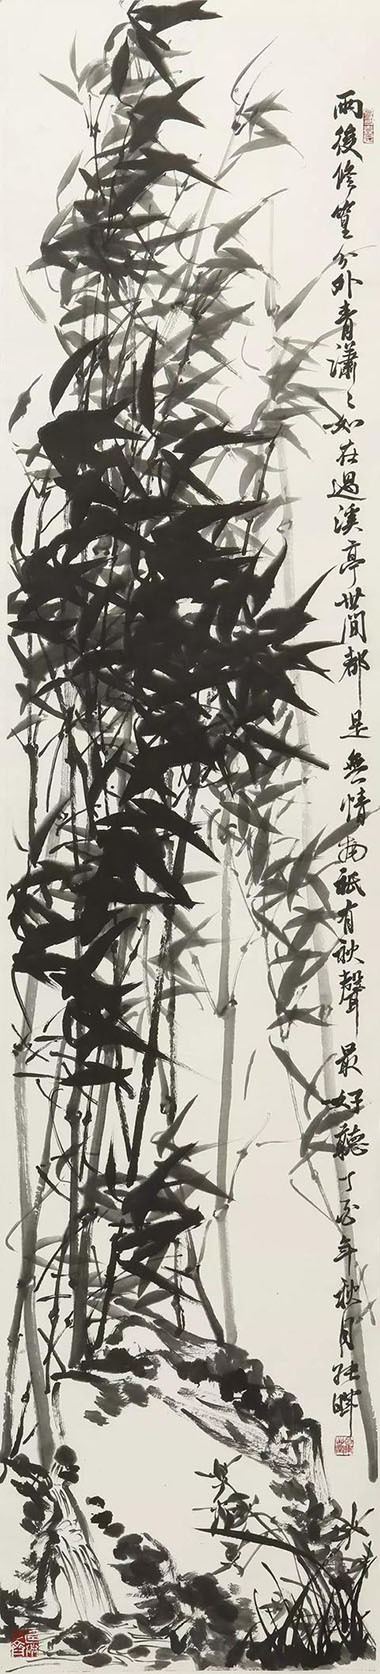 雨後修篁分外青瀟〻如在過溪亭世間都是無情物祗有秋聲最好聽丁酉年秋月